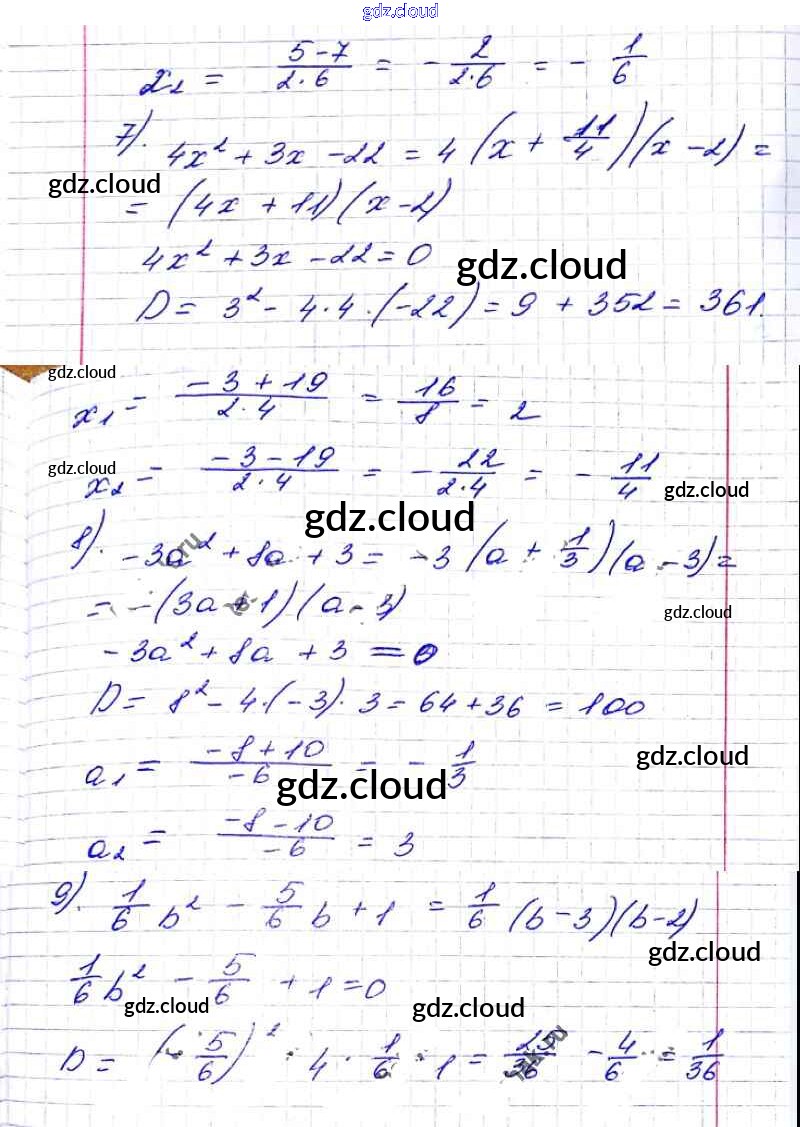 gdz.cloud
x₂ = (5-7)/(2·6) = - 2/(2·6) = - 1/6
7). 4x² + 3x - 22 = 4 (x + 11/4)(x - 2) =
gdz.cloud
= (4x + 11)(x - 2)
4x² + 3x - 22 = 0
gdz.cloud
D = 3² - 4·4·(-22) = 9 + 352 = 361.
gdz.cloud
x₁ = (-3 + 19)/(2·4) = 16/8 = 2
gdz.cloud
x₂ = (-3 - 19)/(2·4) = - 22/(2·4) = - 11/4
gdz.cloud
gdz.cloud
8). -3a² + 8a + 3 = -3 (a + 1/3)(a - 3) =
= -(3a + 1)(a - 3)
gdz.cloud
-3a² + 8a + 3 = 0
D = 8² - 4·(-3)·3 = 64 + 36 = 100
gdz.cloud
a₁ = (-8 + 10)/(-6) = - 1/3
gdz.cloud
a₂ = (-8 - 10)/(-6) = 3
9). 1/6 b² - 5/6 b + 1 = 1/6 (b - 3)(b - 2)
gdz.cloud
1/6 b² - 5/6 + 1 = 0
gdz.cloud
gdz.cloud
D = (- 5/6)² - 4 · 1/6 · 1 = 25/36 - 4/6 = 1/36